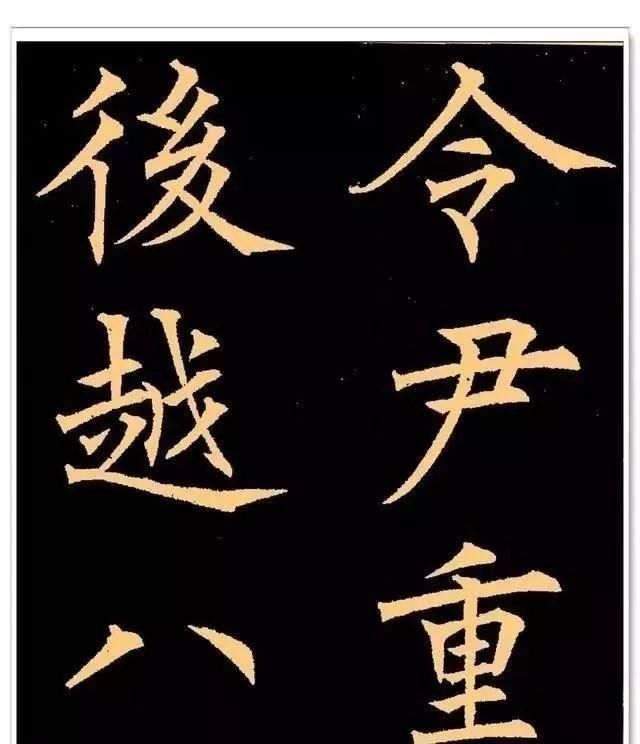 令尹重
後越八